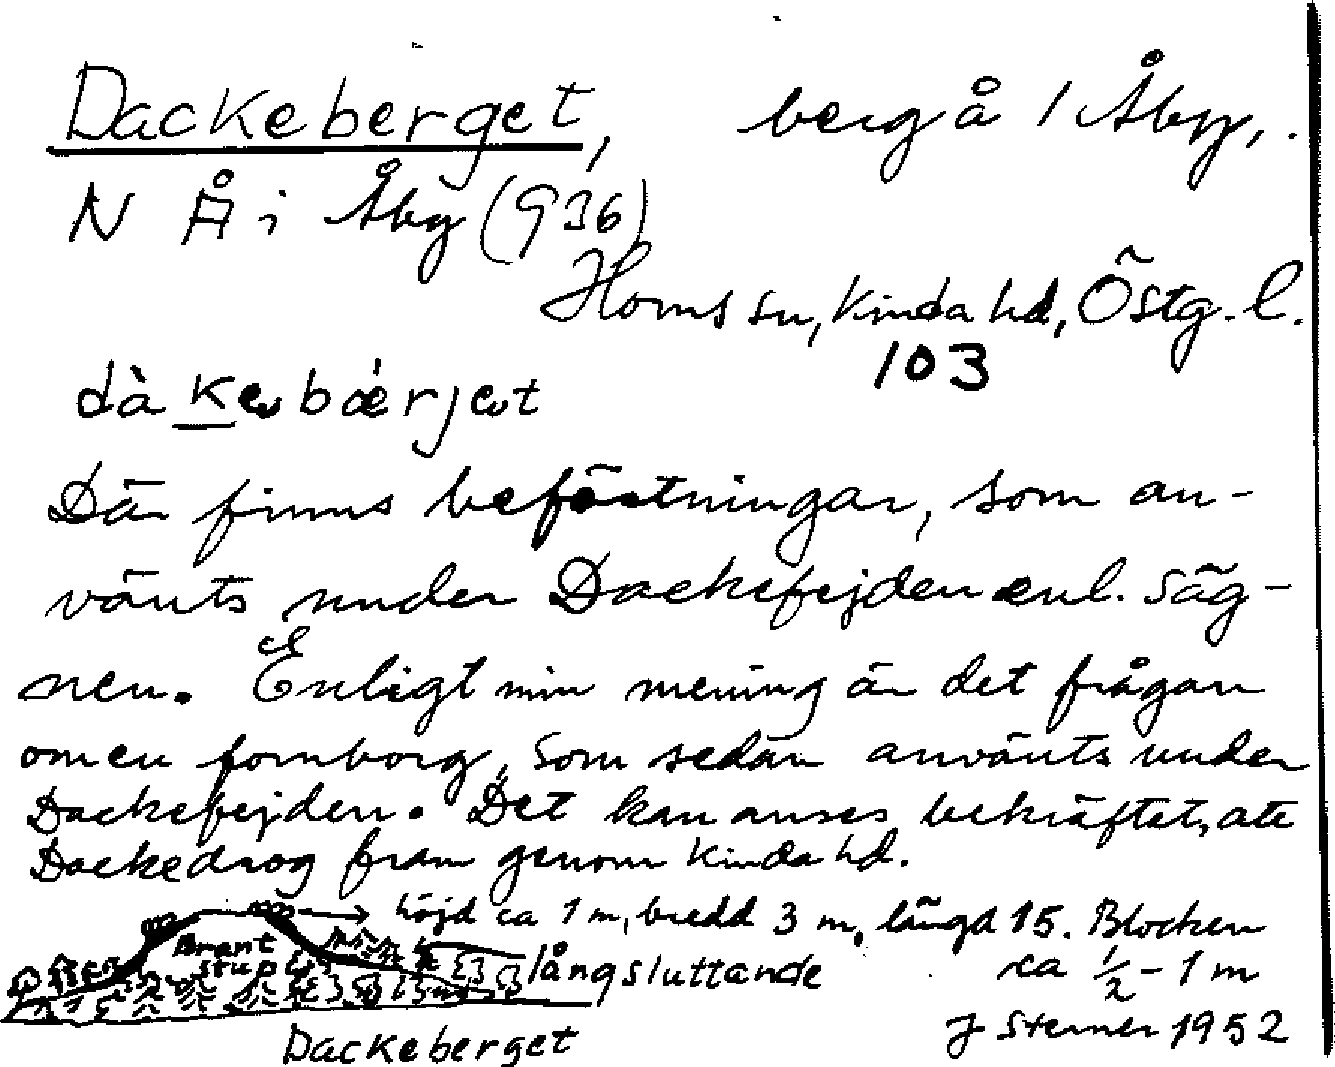 Dackeberget, berg å 1 Åby,
N Å i Åby (936)
Horns sn, Kinda hd, Östg. l.
103
dà kebǽrjet
Där finns befästningar, som an-
vänts under Dackefejden enl. säg-
nen. Enligt min mening är det frågan
om en fornborg, som sedan använts under
Dackefejden. Det kan anses bekräftat, att
Dacke drog fram genom Kinda hd.
höjd ca 1 m, bredd 3 m, längd 15. Blocken
ca 1/2 - 1 m
Brant
stup
långsluttande
J Sterner 1952
Dackeberget